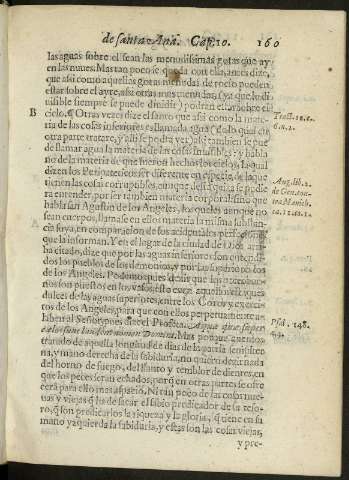 de santa Ana. Cap. 10. 160
las aguas sobre el sean las menudissimas gotas que ay
en las nuues. Mas tan poco se queda con ella, antes dize,
que assi como aquellas gotas menudas de rocio pueden
estar sobre el ayre, assi otras mas menudas, (ya que lo di-
uisible siempre se puede diuidir) podran estar sobre el
B cielo. ¶ Otras vezes dize el santo que assi como la mate-
ria de las cosas inferiores es llamada agua (de lo qual en
otra parte tratare, y alli se podra ver) assi tambien se pue
de llamar agua la materia de las cosas inuisibles: y habla
no de la materia de que fueron hechos los cielos, la qual
dizen los Peripateticos ser diferente en especie, de la que
tienen las cosas corruptibles, aunque
rra entender, por ser tambien materia corporal: sino que
habla san Agustin de los Angeles, los quales aunque no
sean cuerpos, llamase en ellos materia la misma sustan-
cia suya, en comparacion de sus
que la informan. Y en el lugar de la ciudad de Dios
ha citado, dize que por las aguas inferiores son entendi-
dos los pueblos de los demonios, y por las superiores los
de los Angeles. Podemos pues dezir que
son puestos en los
dulces de las aguas superiores, entre los Coros y exerci-
tos de los Angeles, para que con ellos perpetuamente a-
laben al Señor, pues dize el Profeta: Aquæ quæ super
cælos sunt laudent nomen Domini. Mas porque quando
tratando de aquella longitud de dias de la
na, y mano derecha de la sabiduria, no quiero dezir nada
del horno de fuego, del llanto y temblor de dientes, en
que los peces seran echados, porq en otras partes se ofre
cera para ello mas espacio. Ni tan poco de las cosas nue-
uas y viejas q ha de sacar el sabio predicador de su teso-
ro, q son predicarles la riqueza y la gloria, q tiene en su
mano yzquierda la sabiduria, y estas son las cosas viejas,
y pre-
Tract. 12. c.
6. n. 2.
Aug. lib. 2.
de Gen. con-
tra Manich.
ca. 11. to. 1.
Psal. 148.